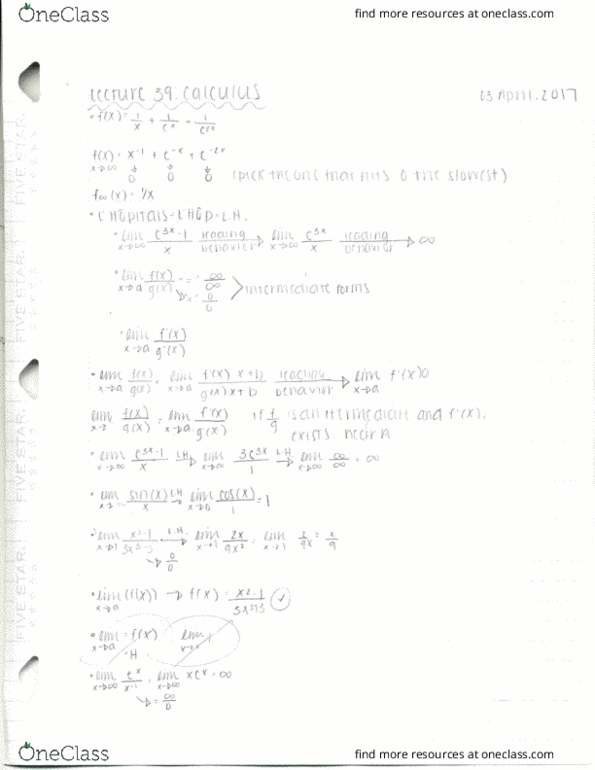 OneClass
find more resources at oneclass.com
Lecture 39. Calculus
03 April. 2017
• f(x) = 1/x + 1/e^x + 1/e^2x
f(x) = x^-1 + e^-x + e^-2x
x→∞ 0 0 0 (pick the one that hits 0 the slowest)
f∞(x) = 1/x
• L'Hôpitals = L'Hôp = L.H.
• lim x→∞ e^3x - 1 / x leading behavior → lim x→∞ e^3x / x leading behavior → ∞
• lim x→a f(x)/g(x) = ∞/∞
0/0 > intermediate forms
• lim x→a f'(x)/g'(x)
• lim x→a f(x)/g(x) = lim x→a f'(x) x+b / g'(x) x+b leading behavior → lim x→a f'(x)
lim x→ f(x)/g(x) = lim x→a f'(x)/g'(x) if f/g is an and f'(x).
exists near
• lim x→∞ e^3x - 1 / x L.H. → lim x→∞ 3e^3x / 1 L.H. → lim x→∞ ∞/∞ = ∞
• lim sin(x)/x L.H. → lim cos(x)/1 = 1
• lim x→1 x²-1 / 3x³-3 L.H. → lim x→1 2x/9x² = lim x→1 2/9x = 2/9
→ 0/0
• lim x→a (f(x)) → f(x) = x²-1 / 3x³
• lim x→a = f(x) lim
H
• lim x→∞ e^x / x^-1 = lim x→∞ xe^x = ∞
→ = ∞/0
FIVE STAR.
FIVE STAR.
FIVE STAR.
FIVE STAR.
OneClass
find more resources at oneclass.com